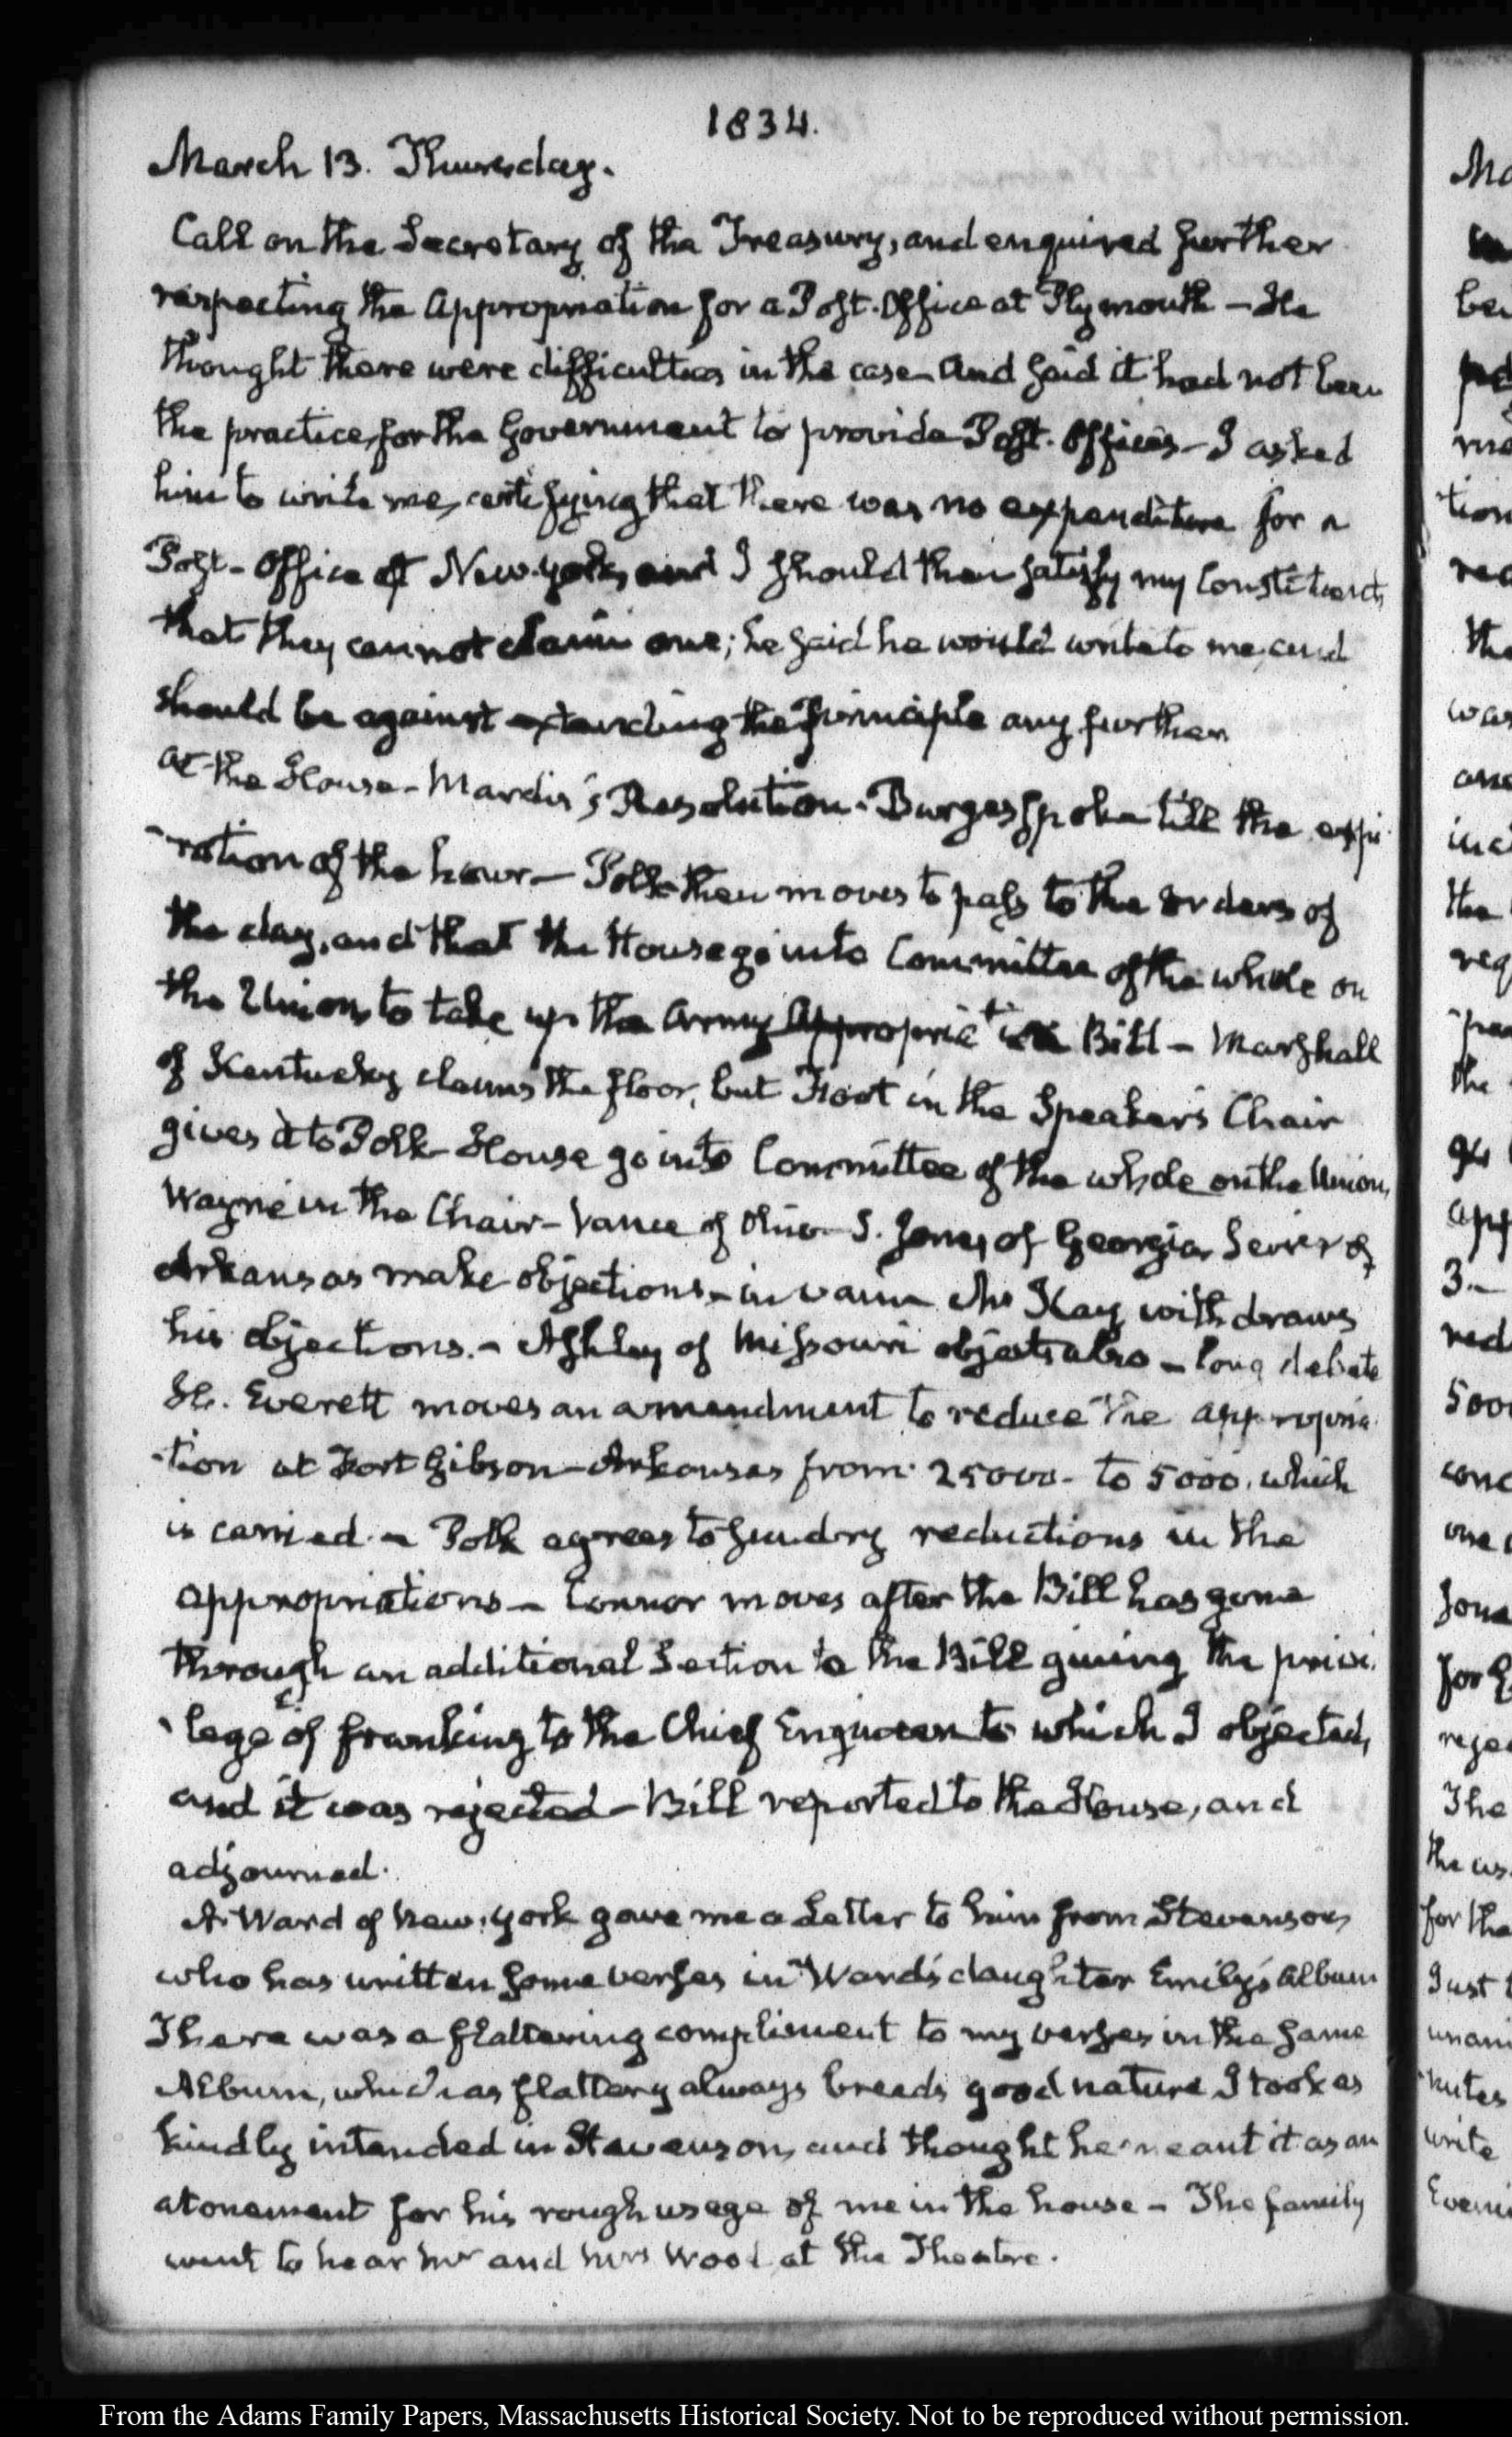 1834.
March 13. Thursday.
Call on the Secretary of the Treasury, and enquired further
respecting the Appropriation for a Post-Office at Plymouth - He
thought there were difficulties in the case and said it had not been
the practice, for the Government to provide Post-Offices - I asked
him to write me, certifying that there was no expenditure for a
Post-Office at New-york, and I should then satisfy my Constituents
that they cannot claim one; he said he would write to me, and
should be against extending the Principle any further
at the House - Mardis's Resolution - Burges spoke till the expi
-ration of the hour - Polk then moves to pass to the orders of
the day, and that the House go into Committee of the whole on
the Union, to take up the Army Appropriation Bill - Marshall
of Kentucky claims the floor, but Foot in the Speaker's Chair
gives it to Polk - House go into Committee of the whole on the Union,
Wayne in the Chair - Vance of Ohio - S. Jones, of Georgia, Sevier of
Arkansas make objections - in vain - McKay withdraws
his objections. - Ashley of Missouri objects also - long debate
H. Everett moves an amendment to reduce the appropria
-tion at Fort Gibson - Arkansas from 25000 - to 5000. which
is carried - Polk agrees to sundry reductions in the
appropriations - Connor moves after the Bill has gone
through an additional Section to the Bill giving the privi
-lege of franking to the Chief Engineer to which I objected,
and it was rejected - Bill reported to the House, and
adjourned.
A. Ward of New-york gave me a Letter to him from Stevenson
who has written some verses in Ward's daughter Emily's Album
There was a flattering compliment to my verses in the same
Album, which as flattery always breeds good nature I took as
kindly intended in Stevenson, and thought he meant it as an
atonement for his rough usage of me in the house - The family
went to hear Mr and Mrs Wood at the Theatre.
From the Adams Family Papers, Massachusetts Historical Society. Not to be reproduced without permission.